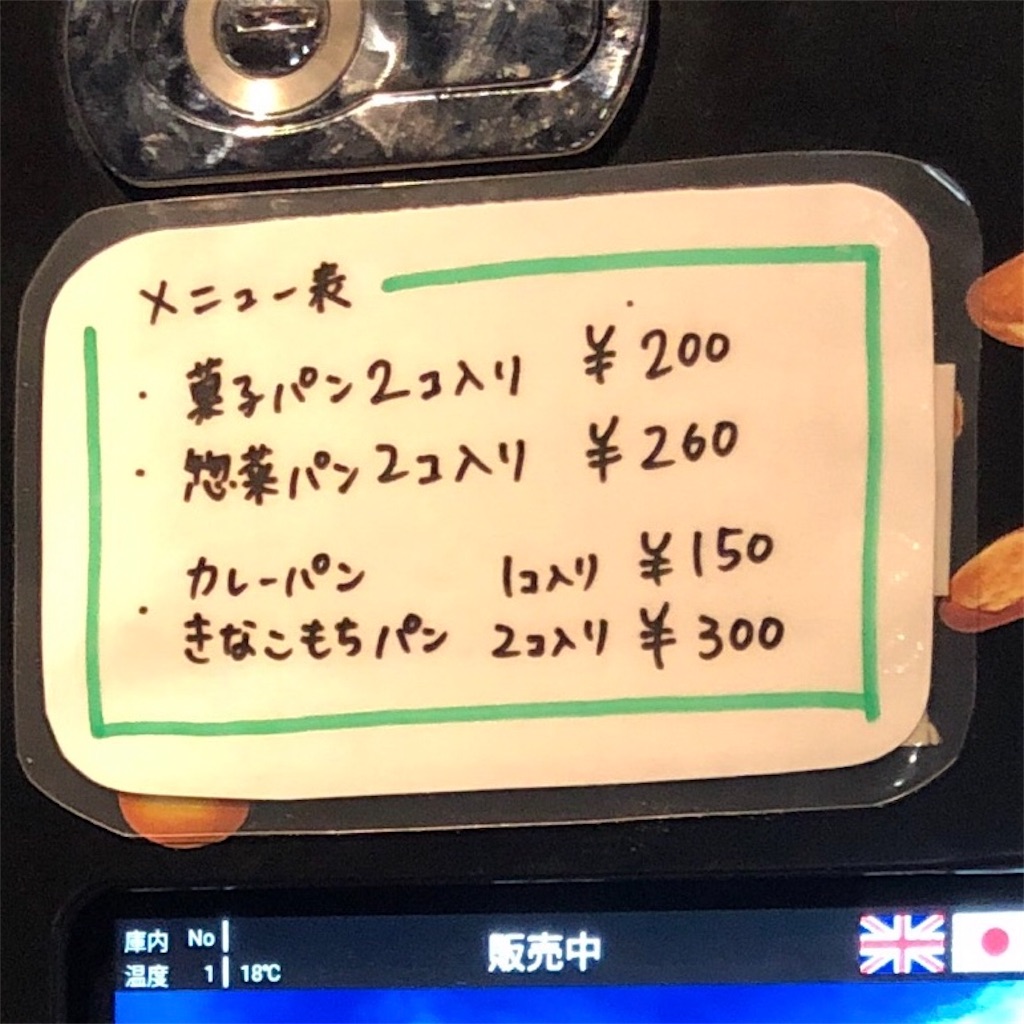 メニュー表
・菓子パン2コ入り ¥200
・惣菜パン2コ入り ¥260
カレーパン 1コ入り ¥150
・きなこもちパン 2コ入り ¥300
庫内 No
販売中
温度 1 18℃